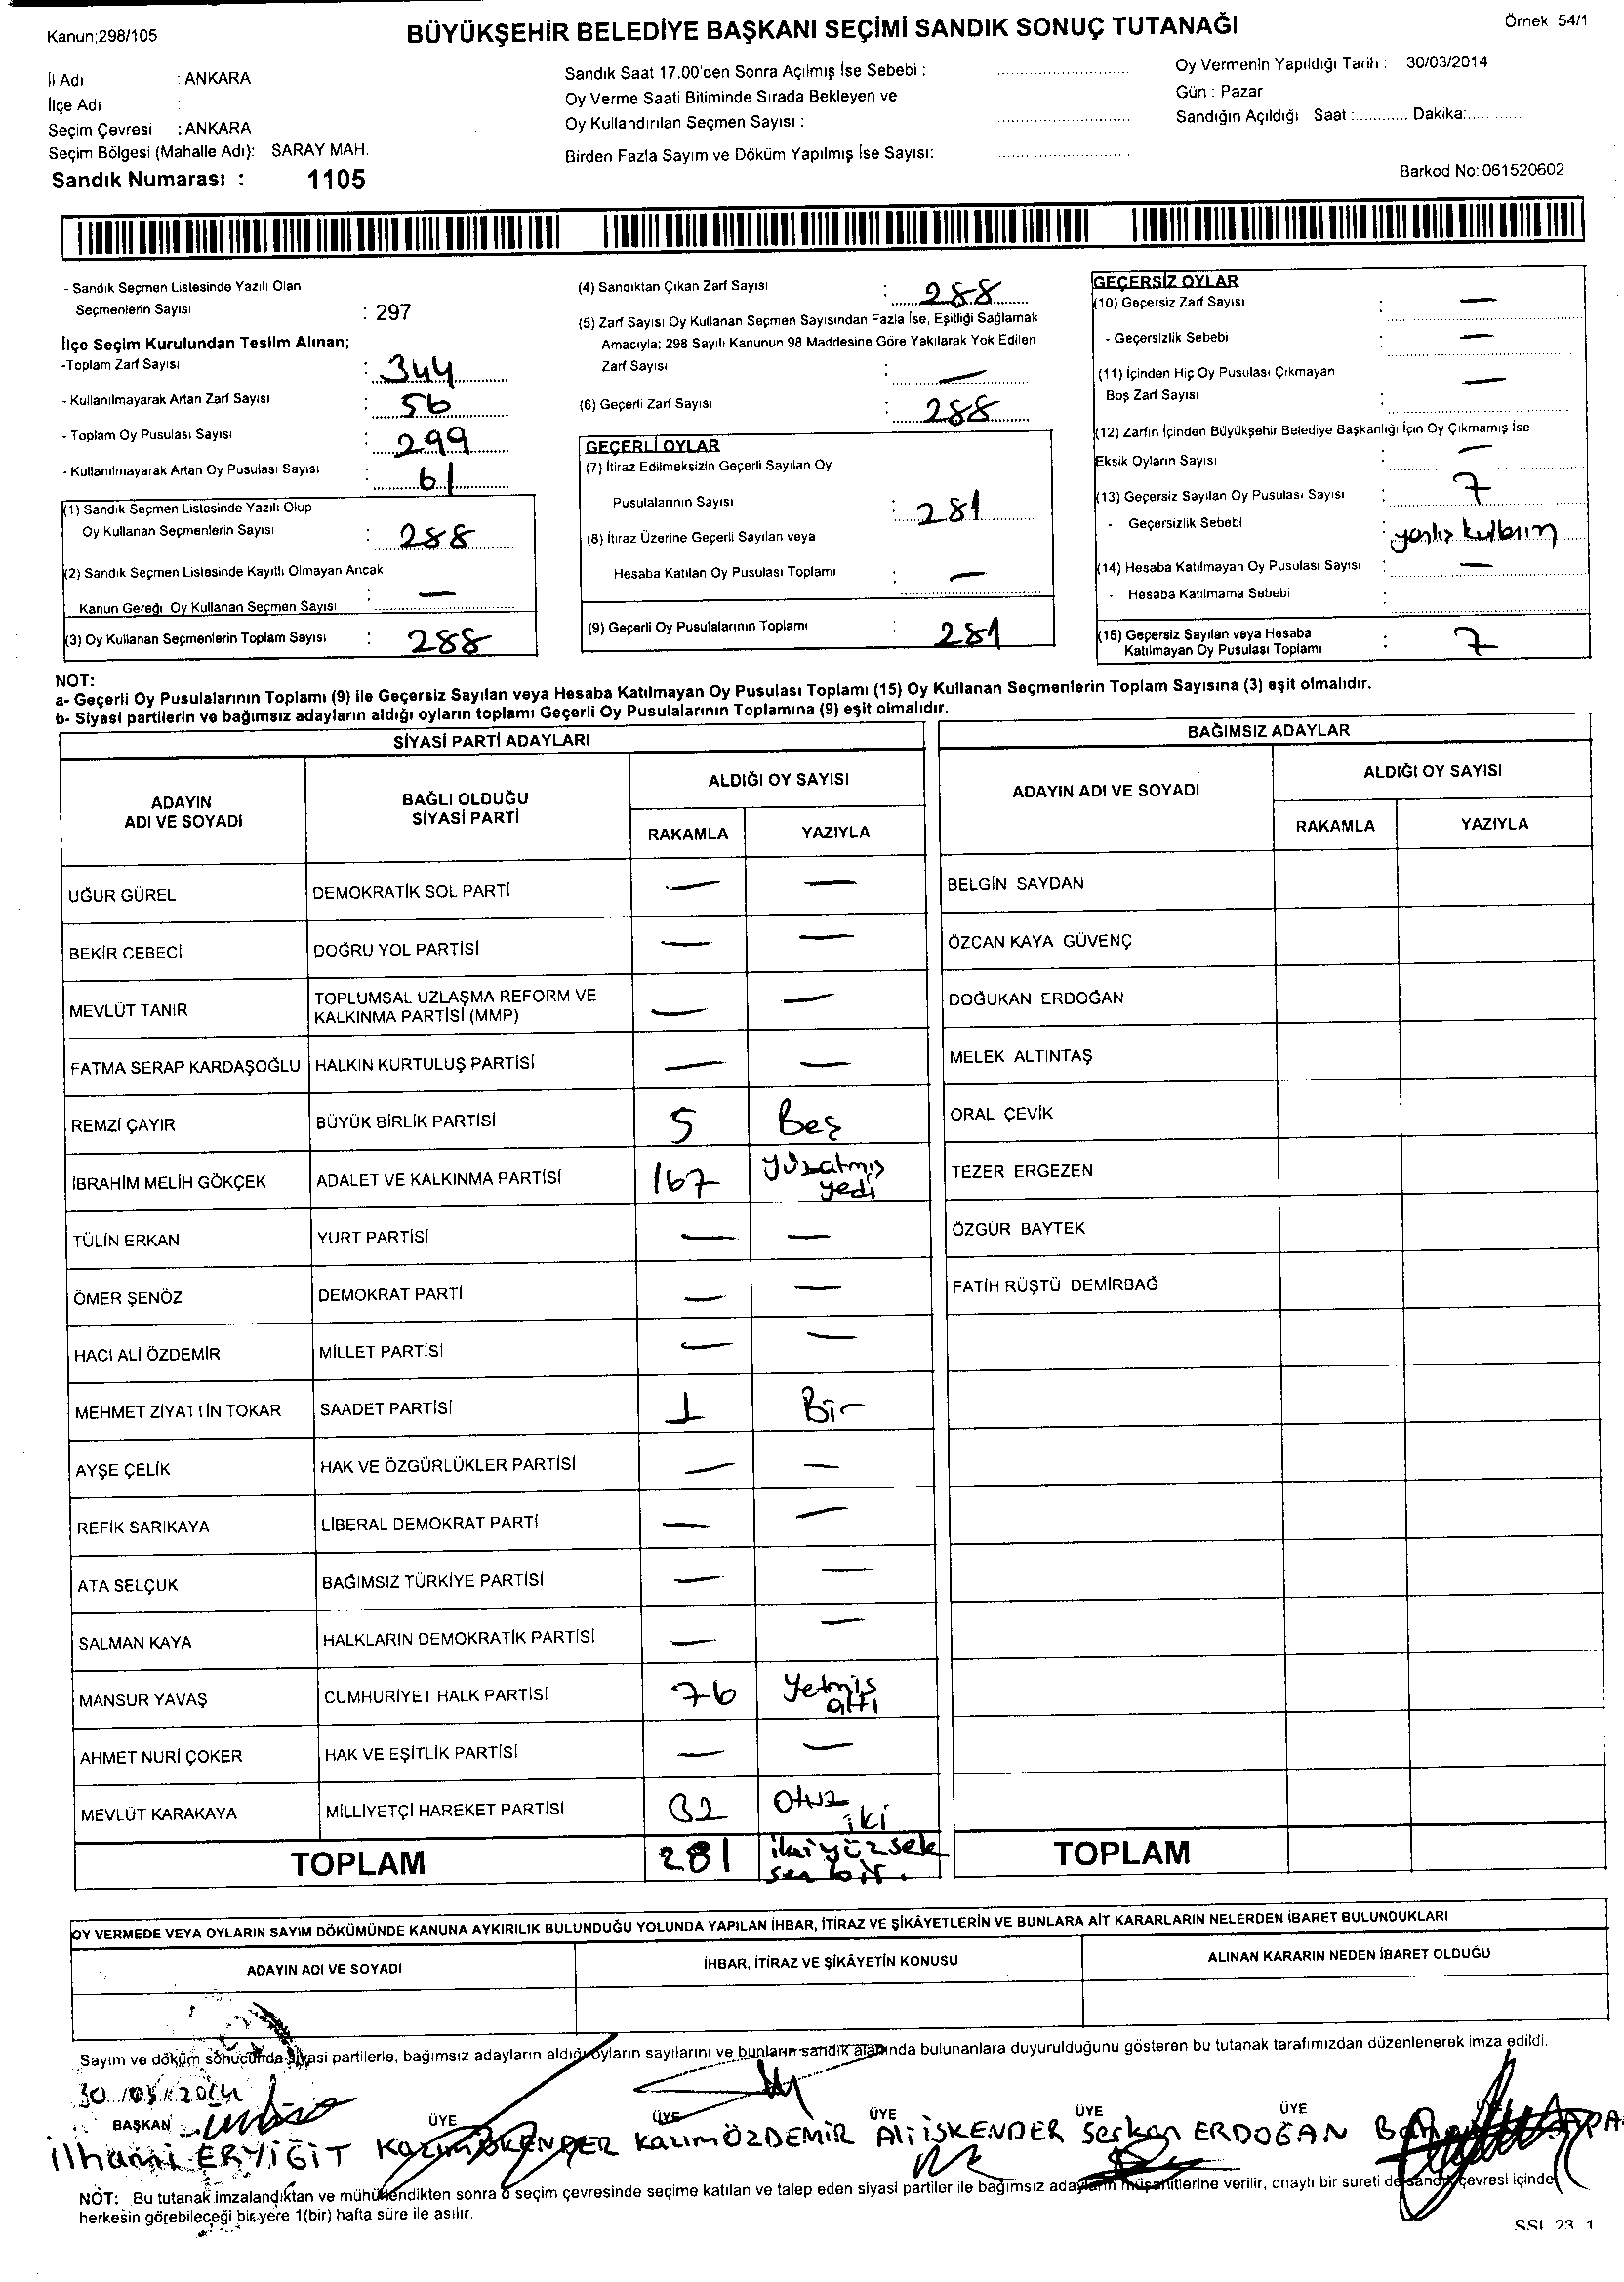 Kanun;298/105
BÜYÜKŞEHİR BELEDİYE BAŞKANI SEÇİMİ SANDIK SONUÇ TUTANAĞI
Örnek 54/1
İl Adı : ANKARA
İlçe Adı :
Seçim Çevresi : ANKARA
Seçim Bölgesi (Mahalle Adı): SARAY MAH.
Sandık Numarası : 1105
Sandık Saat 17.00'den Sonra Açılmış İse Sebebi :
Oy Verme Saati Bitiminde Sırada Bekleyen ve
Oy Kullandırılan Seçmen Sayısı :
Birden Fazla Sayım ve Döküm Yapılmış İse Sayısı:
Oy Vermenin Yapıldığı Tarih : 30/03/2014
Gün : Pazar
Sandığın Açıldığı Saat :........... Dakika:...........
Barkod No: 061520602
- Sandık Seçmen Listesinde Yazılı Olan
Seçmenlerin Sayısı : 297
İlçe Seçim Kurulundan Teslim Alınan;
-Toplam Zarf Sayısı : 344
- Kullanılmayarak Artan Zarf Sayısı : 56
- Toplam Oy Pusulası Sayısı : 299
- Kullanılmayarak Artan Oy Pusulası Sayısı : 61
(1) Sandık Seçmen Listesinde Yazılı Olup
Oy Kullanan Seçmenlerin Sayısı : 288
(2) Sandık Seçmen Listesinde Kayıtlı Olmayan Ancak
Kanun Gereği Oy Kullanan Seçmen Sayısı : —
(3) Oy Kullanan Seçmenlerin Toplam Sayısı : 288
(4) Sandıktan Çıkan Zarf Sayısı : 288
(5) Zarf Sayısı Oy Kullanan Seçmen Sayısından Fazla İse, Eşitliği Sağlamak
Amacıyla; 298 Sayılı Kanunun 98.Maddesine Göre Yakılarak Yok Edilen
Zarf Sayısı : —
(6) Geçerli Zarf Sayısı : 288
GEÇERLİ OYLAR
(7) İtiraz Edilmeksizin Geçerli Sayılan Oy
Pusulalarının Sayısı : 281
(8) İtiraz Üzerine Geçerli Sayılan veya
Hesaba Katılan Oy Pusulası Toplamı : —
(9) Geçerli Oy Pusulalarının Toplamı : 281
GEÇERSİZ OYLAR
(10) Geçersiz Zarf Sayısı : —
- Geçersizlik Sebebi : —
(11) İçinden Hiç Oy Pusulası Çıkmayan
Boş Zarf Sayısı : —
(12) Zarfın İçinden Büyükşehir Belediye Başkanlığı İçin Oy Çıkmamış İse
Eksik Oyların Sayısı : —
(13) Geçersiz Sayılan Oy Pusulası Sayısı : 7
- Geçersizlik Sebebi :
(14) Hesaba Katılmayan Oy Pusulası Sayısı : —
- Hesaba Katılmama Sebebi :
(15) Geçersiz Sayılan veya Hesaba
Katılmayan Oy Pusulası Toplamı : 7
NOT:
a- Geçerli Oy Pusulalarının Toplamı (9) ile Geçersiz Sayılan veya Hesaba Katılmayan Oy Pusulası Toplamı (15) Oy Kullanan Seçmenlerin Toplam Sayısına (3) eşit olmalıdır.
b- Siyasi partilerin ve bağımsız adayların aldığı oyların toplamı Geçerli Oy Pusulalarının Toplamına (9) eşit olmalıdır.
SİYASİ PARTİ ADAYLARI
ADAYIN
ADI VE SOYADI
BAĞLI OLDUĞU
SİYASİ PARTİ
ALDIĞI OY SAYISI
RAKAMLA YAZIYLA
UĞUR GÜREL DEMOKRATİK SOL PARTİ — —
BEKİR CEBECİ DOĞRU YOL PARTİSİ — —
MEVLÜT TANIR TOPLUMSAL UZLAŞMA REFORM VE
KALKINMA PARTİSİ (MMP) — —
FATMA SERAP KARDAŞOĞLU HALKIN KURTULUŞ PARTİSİ — —
REMZİ ÇAYIR BÜYÜK BİRLİK PARTİSİ 5 Beş
İBRAHİM MELİH GÖKÇEK ADALET VE KALKINMA PARTİSİ 167 yüzatmış
yedi
TÜLİN ERKAN YURT PARTİSİ — —
ÖMER ŞENÖZ DEMOKRAT PARTİ — —
HACI ALİ ÖZDEMİR MİLLET PARTİSİ — —
MEHMET ZİYATTİN TOKAR SAADET PARTİSİ 1 Bir
AYŞE ÇELİK HAK VE ÖZGÜRLÜKLER PARTİSİ — —
REFİK SARIKAYA LİBERAL DEMOKRAT PARTİ — —
ATA SELÇUK BAĞIMSIZ TÜRKİYE PARTİSİ — —
SALMAN KAYA HALKLARIN DEMOKRATİK PARTİSİ — —
MANSUR YAVAŞ CUMHURİYET HALK PARTİSİ 76 Yetmiş
altı
AHMET NURİ ÇOKER HAK VE EŞİTLİK PARTİSİ — —
MEVLÜT KARAKAYA MİLLİYETÇİ HAREKET PARTİSİ 32 otuz
iki
TOPLAM 281 ikiyüzsek
sen bir.
BAĞIMSIZ ADAYLAR
ADAYIN ADI VE SOYADI
ALDIĞI OY SAYISI
RAKAMLA YAZIYLA
BELGİN SAYDAN
ÖZCAN KAYA GÜVENÇ
DOĞUKAN ERDOĞAN
MELEK ALTINTAŞ
ORAL ÇEVİK
TEZER ERGEZEN
ÖZGÜR BAYTEK
FATİH RÜŞTÜ DEMİRBAĞ
TOPLAM
OY VERMEDE VEYA OYLARIN SAYIM DÖKÜMÜNDE KANUNA AYKIRILIK BULUNDUĞU YOLUNDA YAPILAN İHBAR, İTİRAZ VE ŞİKÂYETLERİN VE BUNLARA AİT KARARLARIN NELERDEN İBARET BULUNDUKLARI
ADAYIN ADI VE SOYADI
İHBAR, İTİRAZ VE ŞİKÂYETİN KONUSU
ALINAN KARARIN NEDEN İBARET OLDUĞU
Sayım ve döküm sonucunda siyasi partilerle, bağımsız adayların aldığı oyların sayılarını ve bunların sandık alanında bulunanlara duyurulduğunu gösteren bu tutanak tarafımızdan düzenlenerek imza edildi.
30/03/2014
BAŞKAN ÜYE ÜYE ÜYE ÜYE ÜYE
ilhami ERYİĞİT Kazım İSKENDER Kazım ÖZDEMİR Ali İSKENDER Serkan ERDOĞAN
NOT: Bu tutanak imzalandıktan ve mühürlendikten sonra o seçim çevresinde seçime katılan ve talep eden siyasi partiler ile bağımsız adayların müşahitlerine verilir, onaylı bir sureti de sandık çevresi içinde
herkesin görebileceği bir yere 1(bir) hafta süre ile asılır.